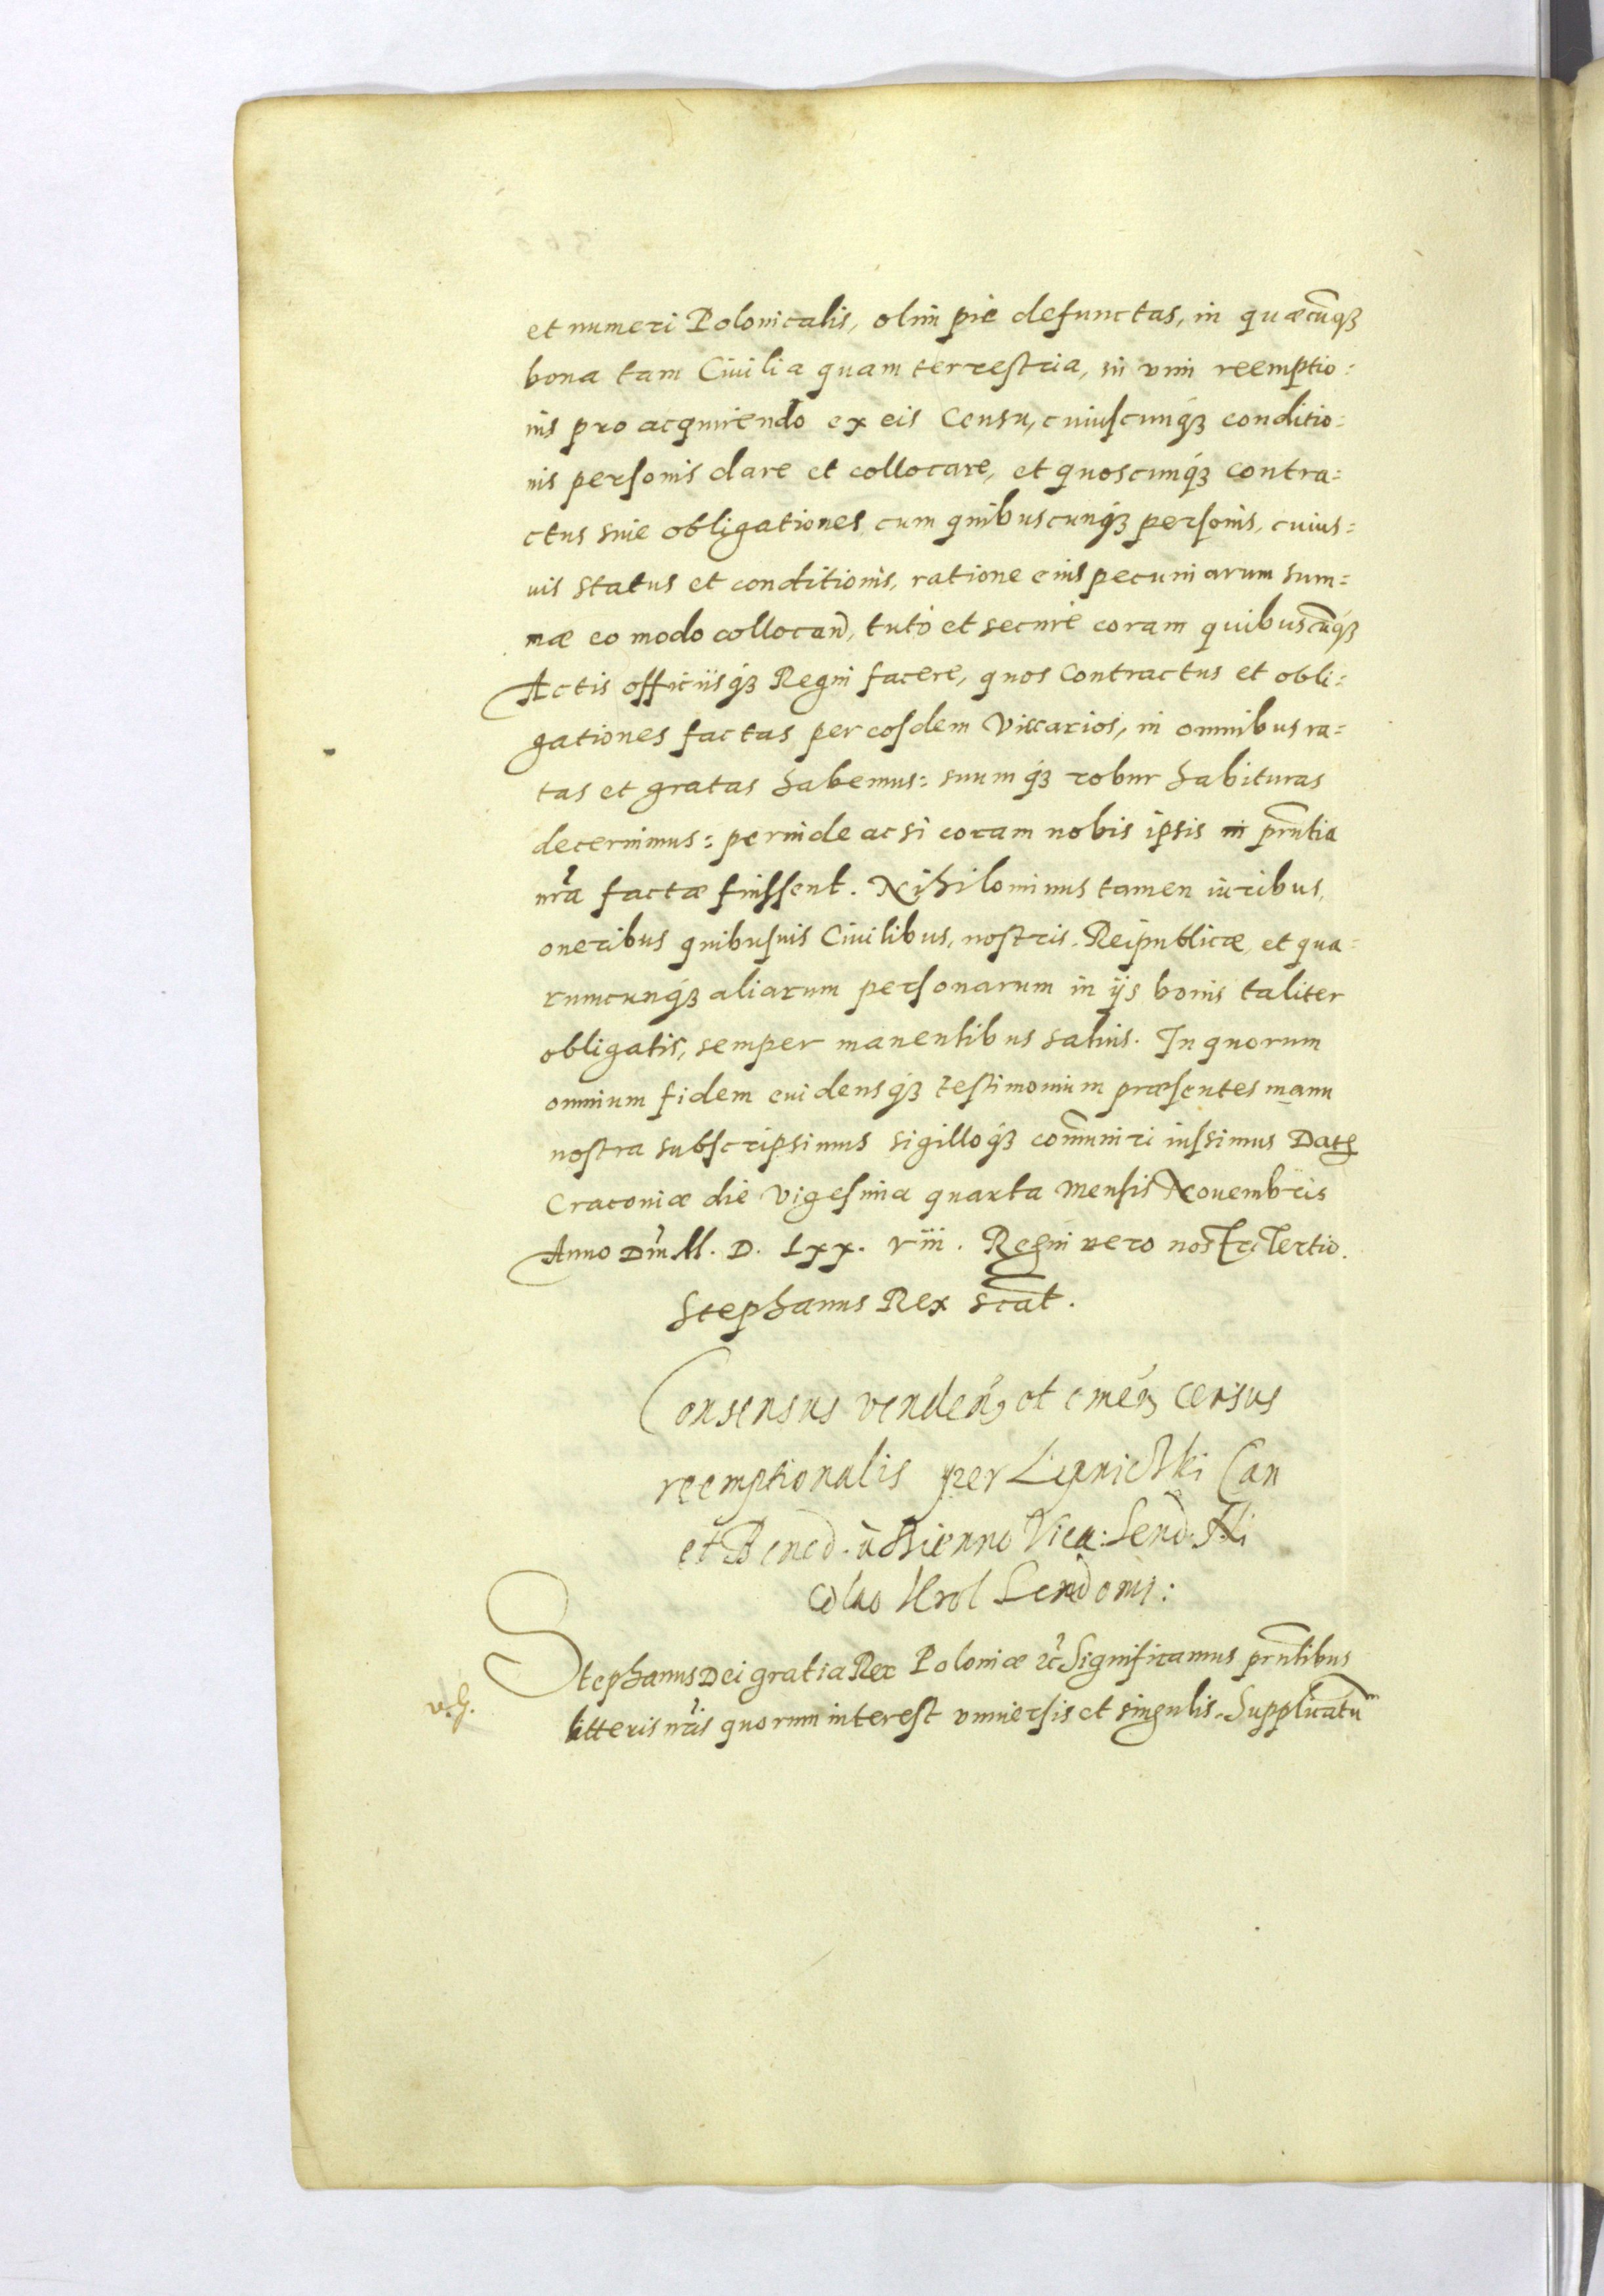 et numeri Polonicalis, olim pie defunctas, in quæcūqꝫ
bona tam Ciuilia quam terrestria, in vim reemptio:
nis pro acquirendo ex eis Censu, cuiuscunqꝫ conditio:
nis personis dare et collocare, et quoscunqꝫ contra:
ctus siue obligationes cum quibuscunqꝫ personis, cuius:
uis status et conditionis, ratione eius pecuniarum sum:
mæ eo modo collocand, tutò et securè coram quibuscūqꝫ
Actis officiisqꝫ Regni facere, quos Contractus et obli:
gationes factas per eosdem Viccarios, in omnibus ra:
tas et gratas habemus: suumqꝫ robur habituras
decernimus: perinde ac si coram nobis ipsis in prntia
nra factæ fuissent. Nihilominus tamen iuribus,
oneribus quibusuis Ciuilibus, nostris, Reipublicæ et qua:
rumcunqꝫ aliarum personarum in ijs bonis taliter
obligatis, semper manentibus saluis. In quorum
omnium fidem euidensqꝫ testimonium præsentes manu
nostra subscripsimus sigilloqꝫ comuniri iussimus Datꝫ
Cracouiæ die vigesima quarta Mensis Nouembris
Anno Dni M. D. Lxx. viii. Regni vero nostri Tertio.
Stephanus Rex scat.
Consensus venden, et emen, census
reemptionalis per Can
et Bened. à Bienno Vica: Send.
Send omi:
Stephanus Dei gratia Rex Poloniæ ꝛc Significamus prntibus
litteris nris quorum interest vniuersis et singulis. Supplicatū